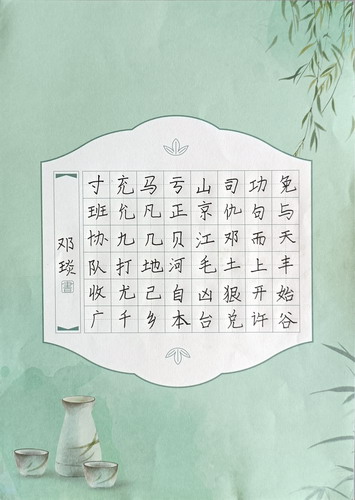 免与天丰始谷
功句而上开许
司仇邓土狠兑
山京江毛凶台
亏正贝河自本
马凡几地己乡
充允九打尤千
寸班协队收广
邓琰
書